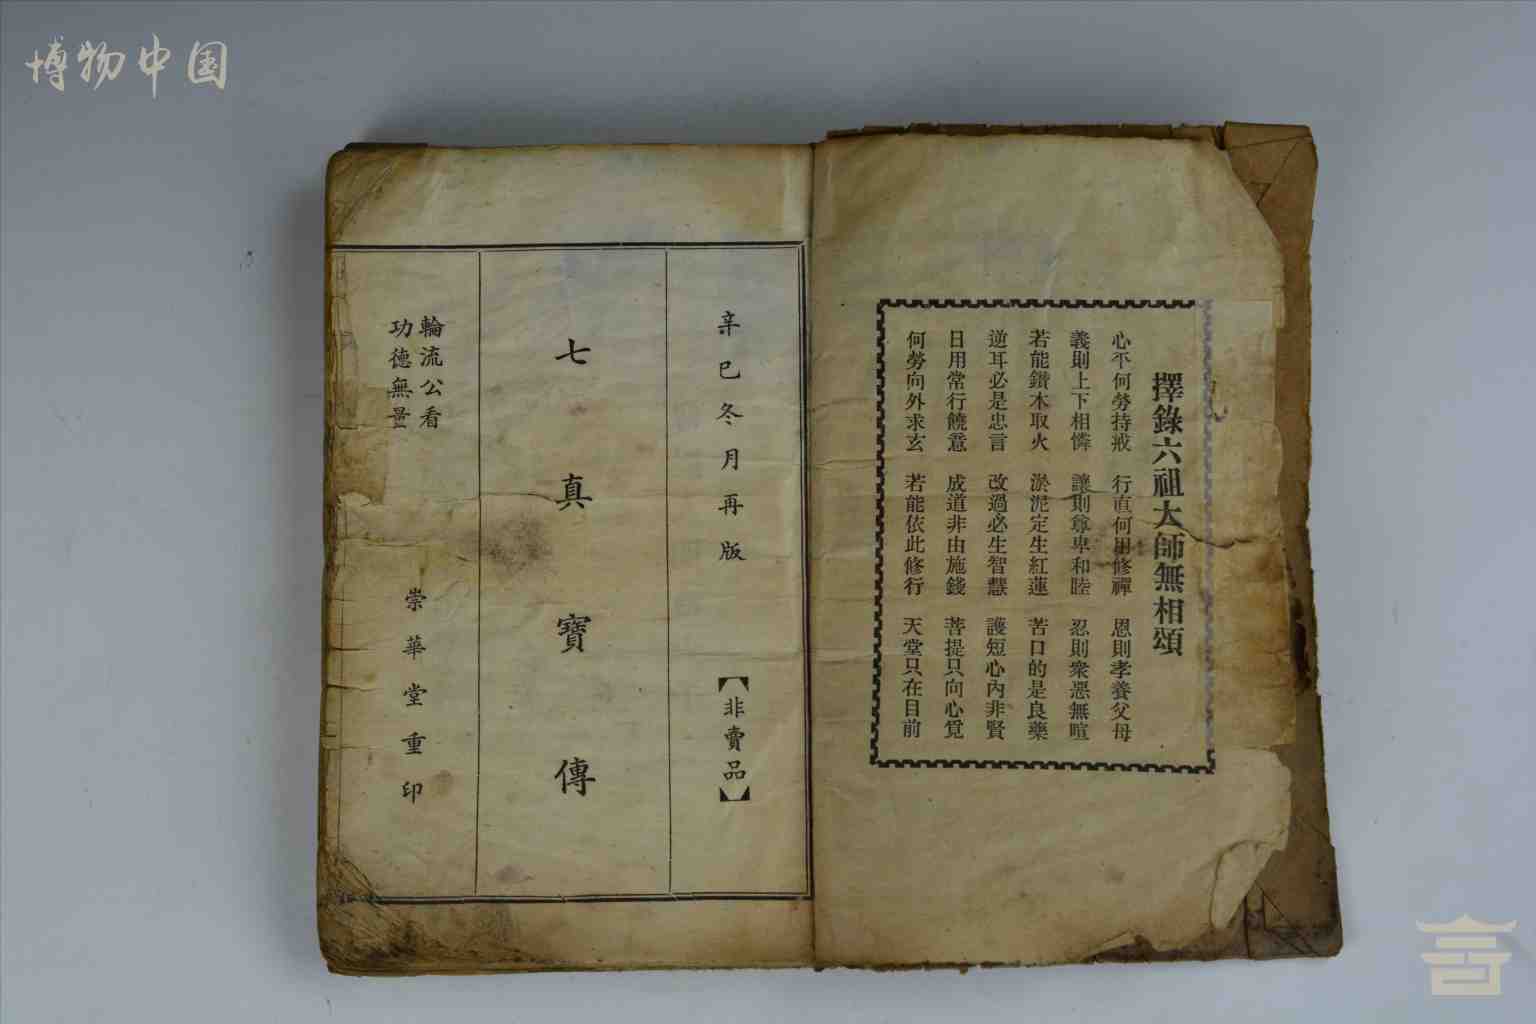 博物中国
擇錄六祖大師無相頌
心平何勞持戒 行直何用修禪 恩則孝養父母
義則上下相憐 讓則尊卑和睦 忍則衆惡無喧
若能鑽木取火 淤泥定生紅蓮 苦口的是良藥
逆耳必是忠言 改過必生智慧 護短心內非賢
日用常行饒意 成道非由施錢 菩提只向心覓
何勞向外求玄 若能依此修行 天堂只在目前
辛巳冬月再版 【非賣品】
七真寶傳
輪流公看
功德無量
崇華堂重印